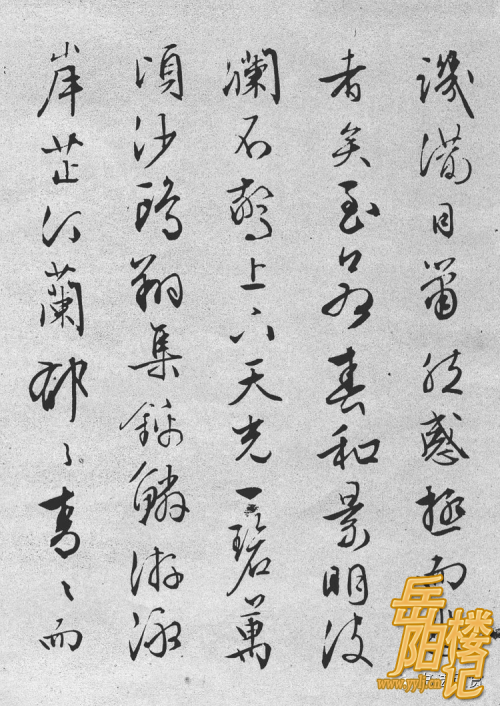 譏滿目蕭然感極而
者矣至若春和景明波
瀾不驚上下天光一碧萬
頃沙鷗翔集錦鱗游泳
岸芷汀蘭郁々青々而
岳阳楼记
www.yylj.cn